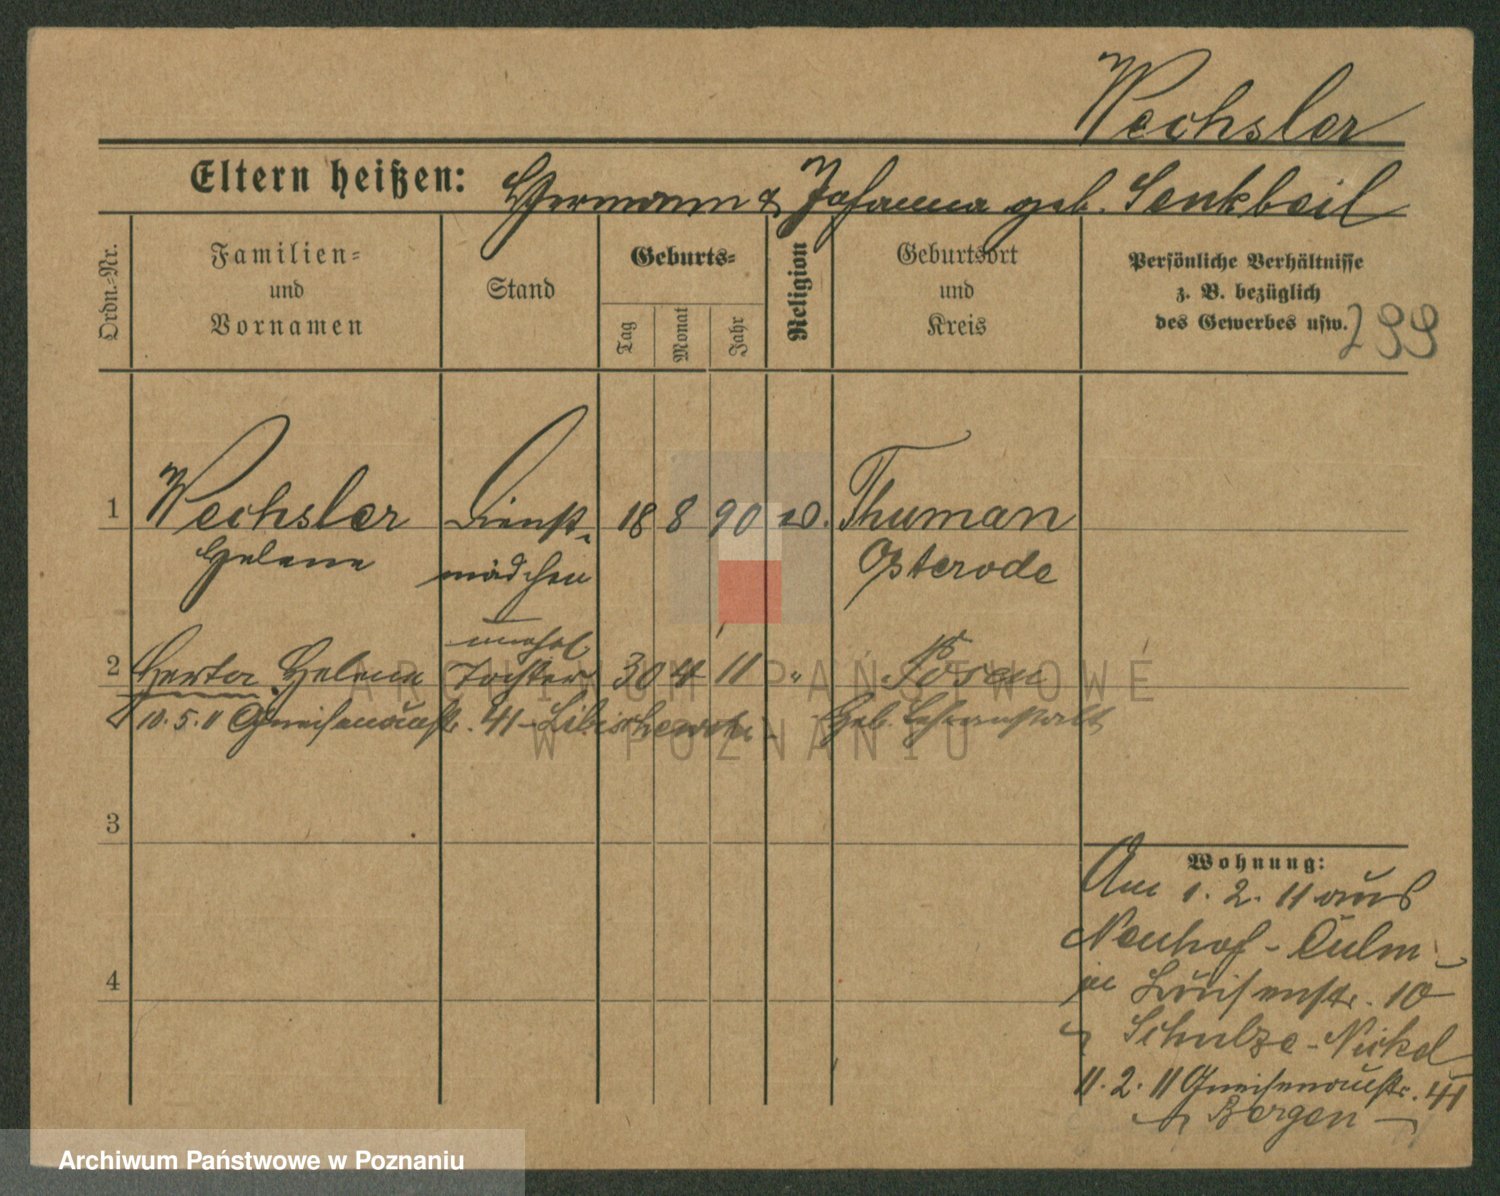 Wechsler
Eltern heißen: Hermann & Johanna geb. Senkbeil
Ordn.-Nr.
Familien-
und
Vornamen
Stand
Geburts-
Tag
Monat
Jahr
Religion
Geburtsort
und
Kreis
Persönliche Verhältnisse
z. B. bezüglich
des Gewerbes usw.
299
1 Wechsler Dienst- 18 8 90 Thurman
Helene mädchen Osterode
unehel
2 Herta Helene Tochter 30 4 11 " Posen
10.5.11 Gneisenaustr. 41 Geb. Lehranstalt
3
4
Wohnung:
Am 1. 2. 11 aus
Neuhof - Culm
in Luisenstr. 10
Schulze-Nickel
11. 2. 11 Gneisenaustr. 41
Bergen
ARCHIWUM PAŃSTWOWE
W POZNANIU
Archiwum Państwowe w Poznaniu